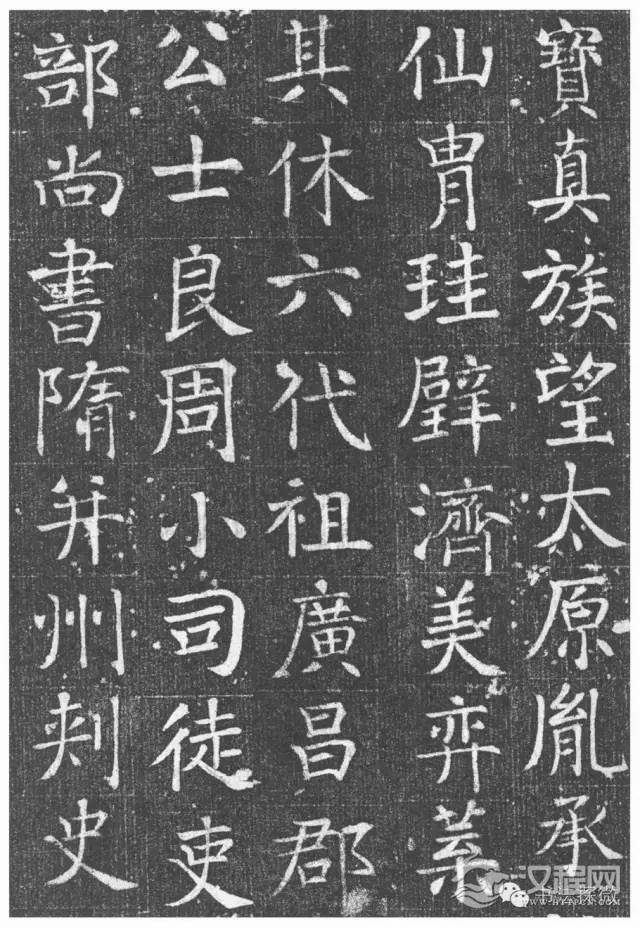 寶真族望太原胤承
仙胄珪璧濟美弈葉
其休六代祖廣昌郡
公士良周小司徒吏
部尚書隋并州刺史
汉程网